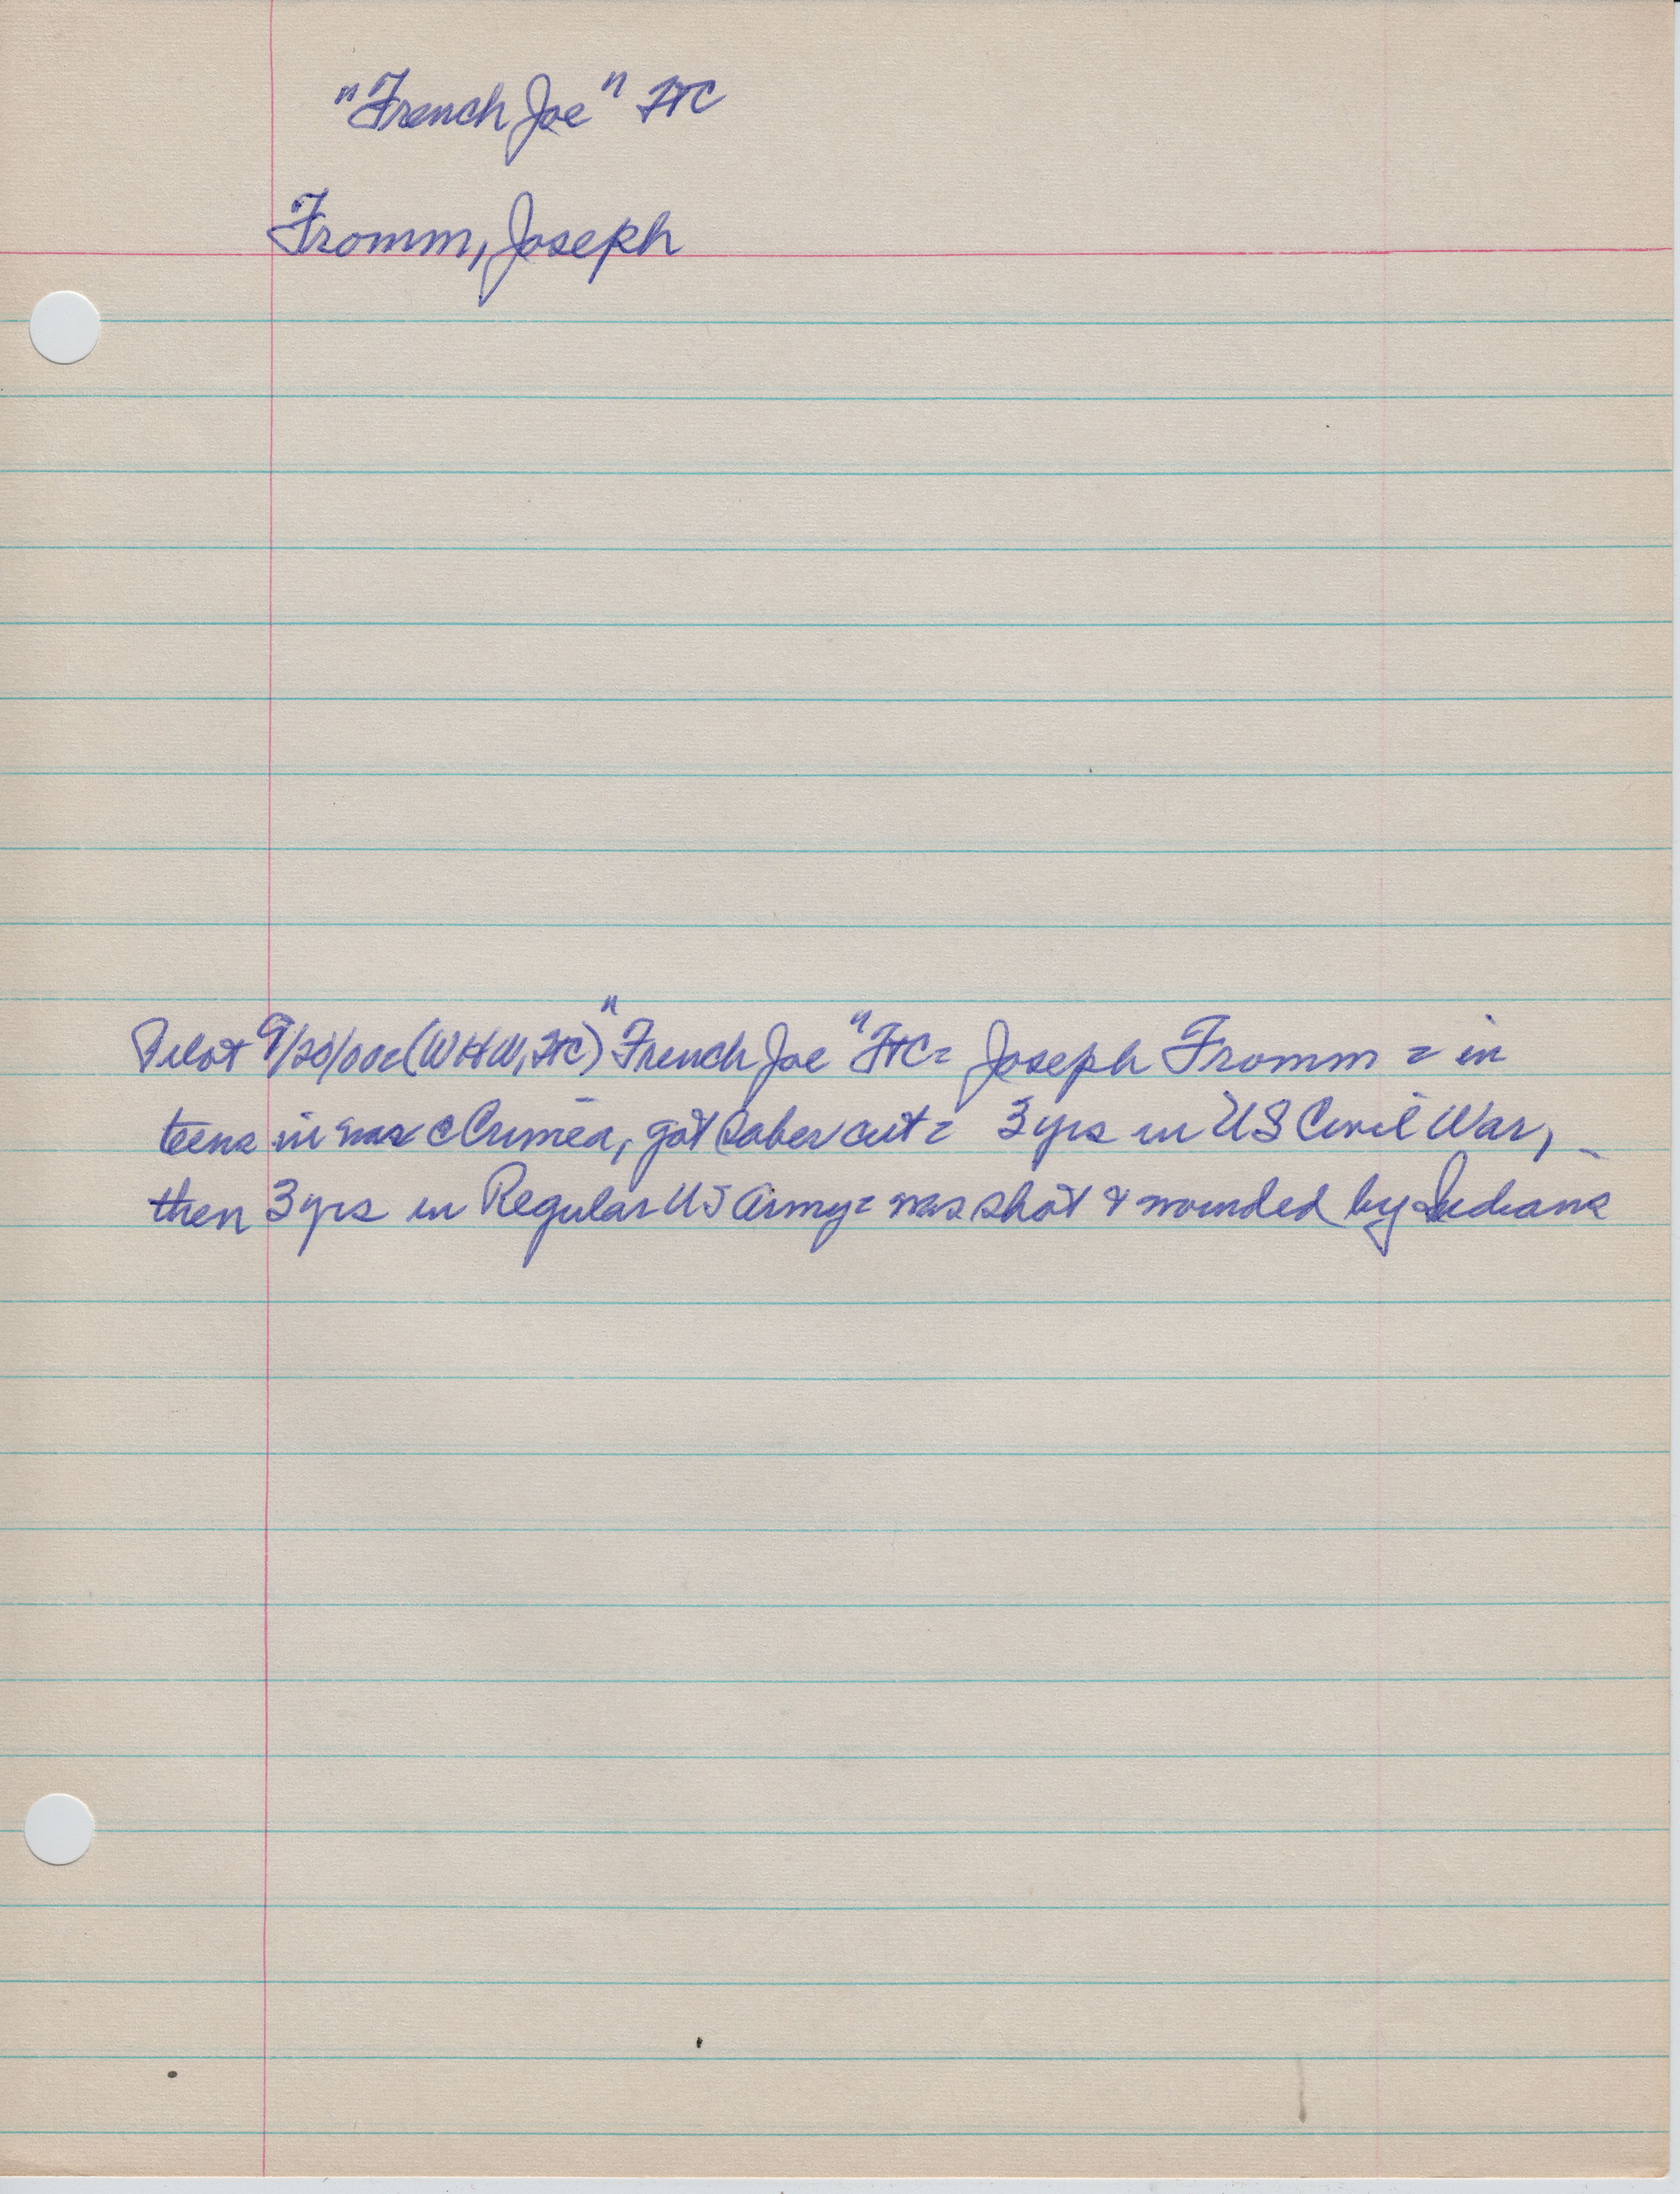 "French Joe" FTC
Fromm, Joseph
Pilot 9/20/00c (WHW, FTC) "French Joe" FTC = Joseph Fromm = in
teens in war c Crimea, got saber cut = 3 yrs in US Civil War,
then 3 yrs in Regular US Army = was shot & wounded by Indians